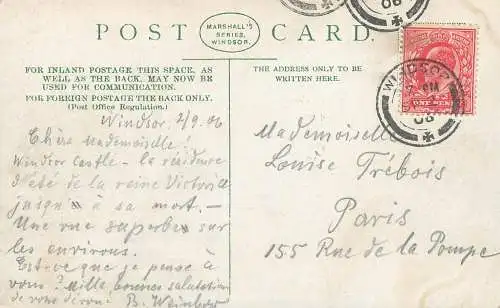 POST CARD.
MARSHALL'S
SERIES,
WINDSOR.
FOR INLAND POSTAGE THIS SPACE, AS
WELL AS THE BACK, MAY NOW BE
USED FOR COMMUNICATION.
FOR FOREIGN POSTAGE THE BACK ONLY.
(Post Office Regulation.)
Windsor 2/9. 06
Chère Mademoiselle!
Windsor Castle - la résidence
d'été de la reine Victoria
jusqu'à sa mort. -
Une vue superbe sur
les environs.
Est-ce que je pense à
vous? Mille bonnes salutations
de B. Weinberg
THE ADDRESS ONLY TO BE
WRITTEN HERE.
Mademoiselle
Louise Trébois
Paris
155 Rue de la Pompe
WINDSOR
06
ONE PENNY
06